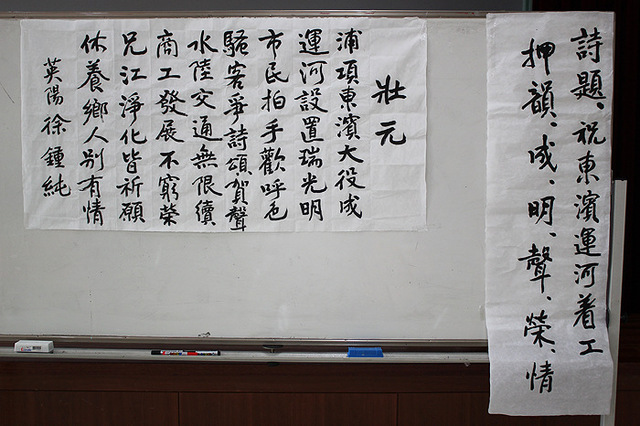 詩題、祝東濱運河着工
押韻、成、明、聲、榮、情
壯元
浦項東濱大役成
運河設置瑞光明
市民拍手歡呼色
騷客爭詩頌賀聲
水陸交通無限續
商工發展不窮榮
兄江淨化皆祈願
休養鄉人別有情
英陽徐鍾純